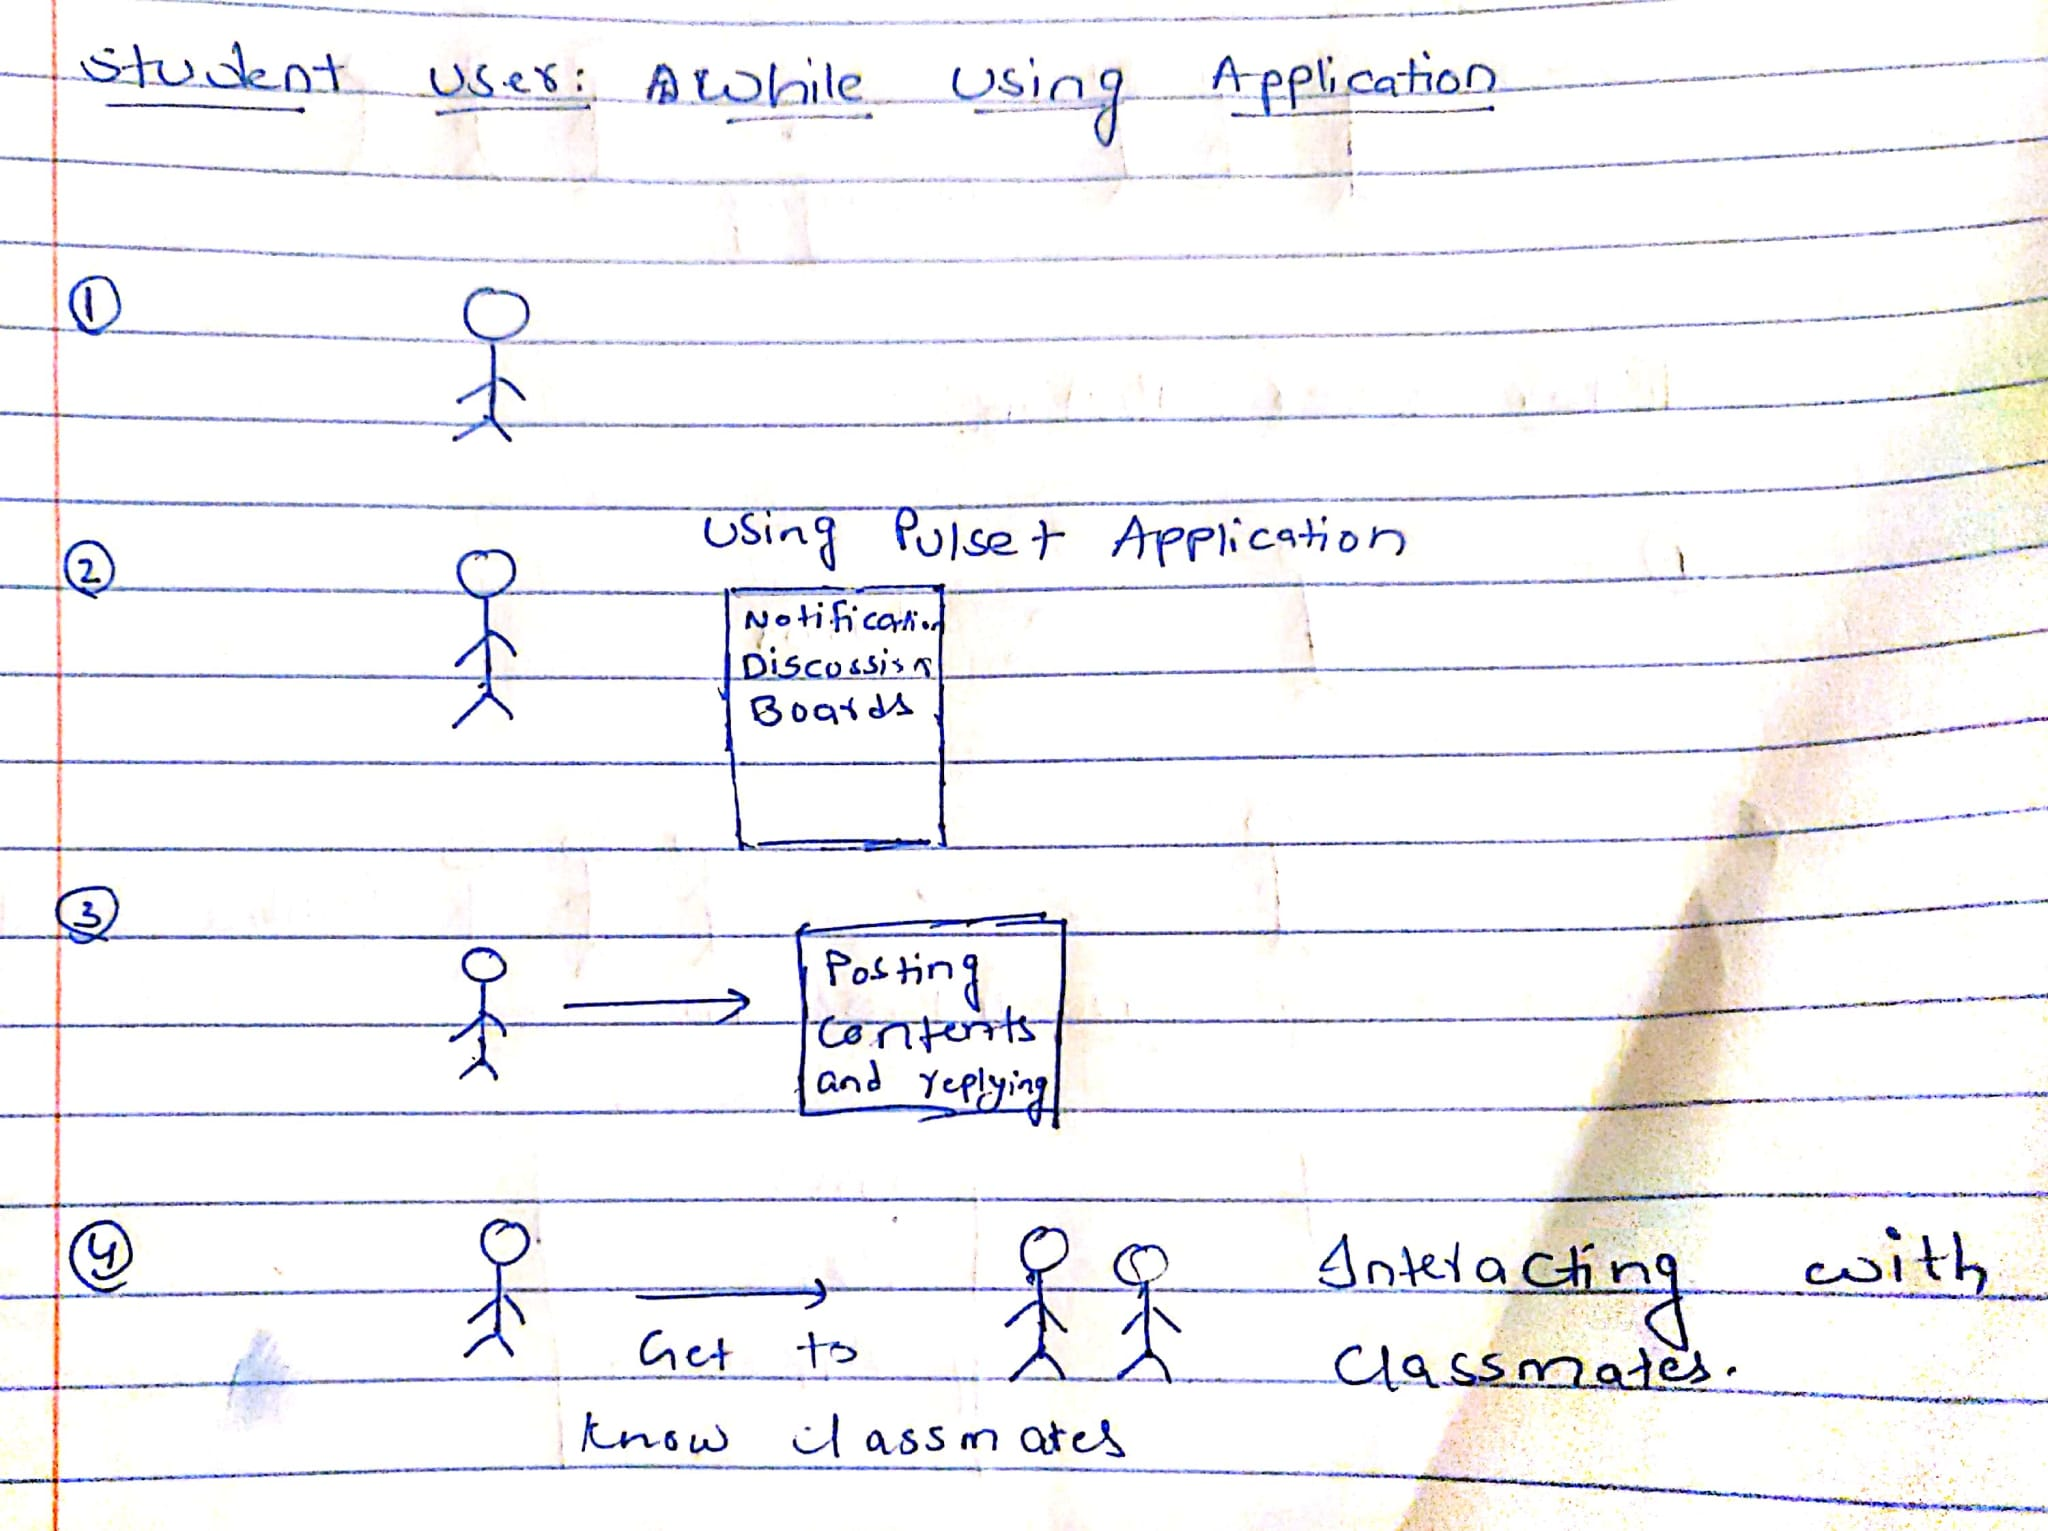 Student User: While Using Application
1
2
Using Pulset Application
Notification
Discussion
Boards
3
Posting
Contents
and replying
4
Get to
know classmates
Interacting with
classmates.